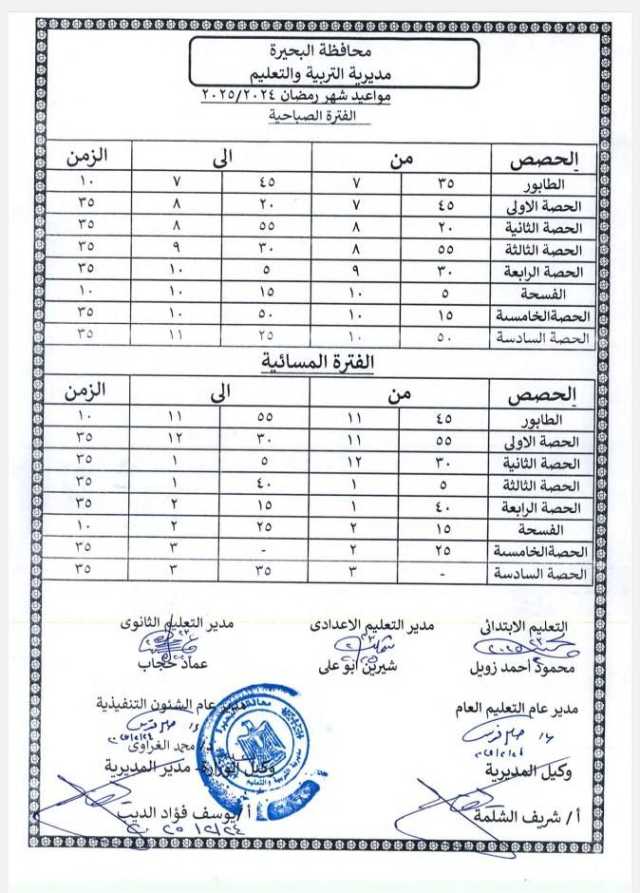 محافظة البحيرة
مديرية التربية والتعليم
مواعيد شهر رمضان ٢٠٢٥/٢٠٢٤
الفترة الصباحية
الحصص من الى الزمن
الطابور ٣٥ ٧ ٤٥ ٧ ١٠
الحصة الاولى ٤٥ ٧ ٢٠ ٨ ٣٥
الحصة الثانية ٢٠ ٨ ٥٥ ٨ ٣٥
الحصة الثالثة ٥٥ ٨ ٣٠ ٩ ٣٥
الحصة الرابعة ٣٠ ٩ ٥ ١٠ ٣٥
الفسحة ٥ ١٠ ١٥ ١٠ ١٠
الحصةالخامسة ١٥ ١٠ ٥٠ ١٠ ٣٥
الحصة السادسة ٥٠ ١٠ ٢٥ ١١ ٣٥
الفترة المسائية
الحصص من الى الزمن
الطابور ٤٥ ١١ ٥٥ ١١ ١٠
الحصة الاولى ٥٥ ١١ ٣٠ ١٢ ٣٥
الحصة الثانية ٣٠ ١٢ ٥ ١ ٣٥
الحصة الثالثة ٥ ١ ٤٠ ١ ٣٥
الحصة الرابعة ٤٠ ١ ١٥ ٢ ٣٥
الفسحة ١٥ ٢ ٢٥ ٢ ١٠
الحصةالخامسة ٢٥ ٢ - ٣ ٣٥
الحصة السادسة - ٣ ٣٥ ٣ ٣٥
التعليم الابتدائى مدير التعليم الاعدادى مدير التعليم الثانوى
محمود أحمد زويل شيرين أبو على عماد حجاب
مدير عام التعليم العام مدير عام الشئون التنفيذية
د/ محمد الغراوى
وكيل المديرية وكيل الوزارة- مدير المديرية
أ/ شريف الشلمة أ/يوسف فؤاد الديب